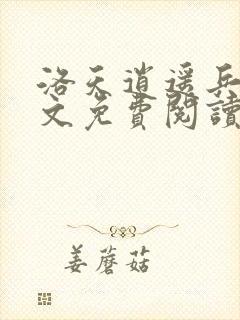 洛天逍遥兵
文免費閱讀
姜蘑菇